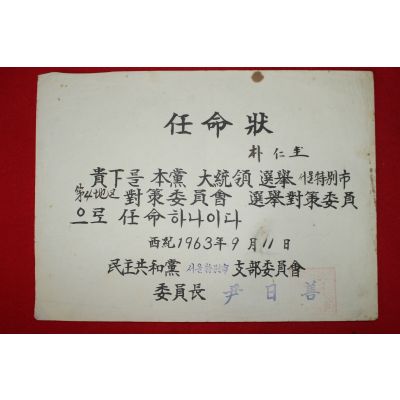 任命狀
朴仁圭
貴下를 本黨 大統領 選擧 서울特別市
第4地区 對策委員會 選擧對策委員
으로 任命하나이다
西紀1963年9月11日
民主共和黨 서울特別市 支部委員會
委員長 尹日善